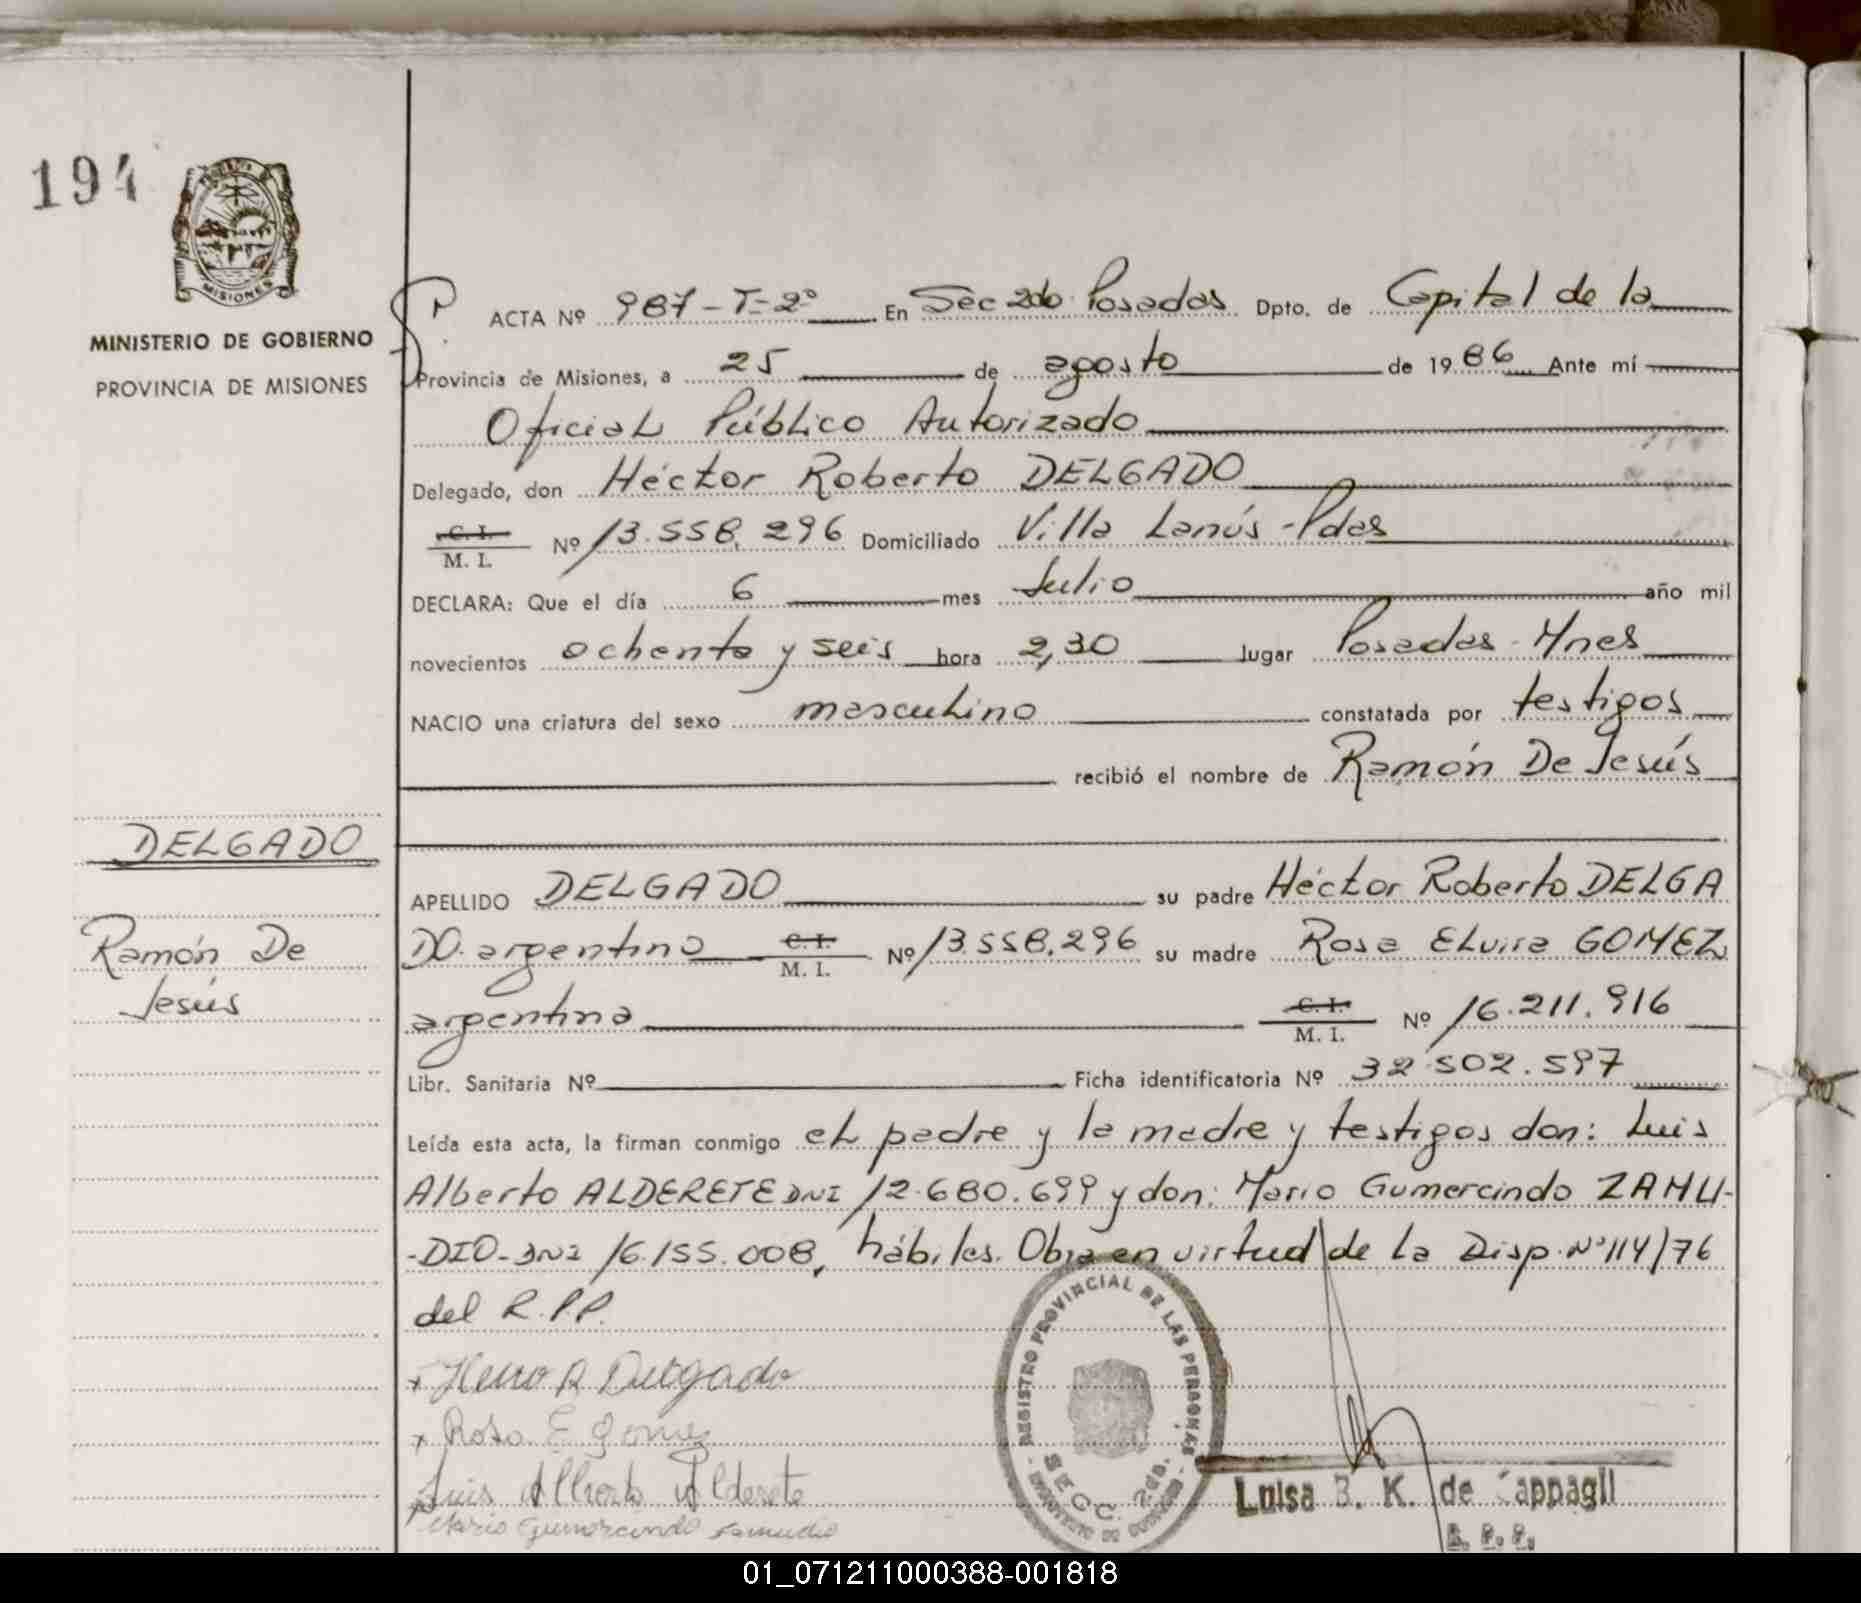 194
MISIONES
MINISTERIO DE GOBIERNO
PROVINCIA DE MISIONES
DELGADO
Ramón De
Jesús
ACTA Nº 987-T-2º En Sec 2da Posadas Dpto. de Capital de la
Provincia de Misiones, a 25 de agosto de 1986 Ante mí
Oficial Público Autorizado
Delegado, don Héctor Roberto DELGADO
C. I.
M. I. Nº 13.558.296 Domiciliado Villa Lanús-Pdas
DECLARA: Que el día 6 mes Julio año mil
novecientos ochenta y seis hora 2,30 lugar Posadas-Mnes
NACIO una criatura del sexo masculino constatada por testigos
recibió el nombre de Ramón De Jesús
APELLIDO DELGADO su padre Héctor Roberto DELGA
DO. argentino C. I. M. I. Nº 13.558.296 su madre Rosa Elvira GOMEZ
argentina C. I. M. I. Nº 16.211.916
Libr. Sanitaria Nº Ficha identificatoria Nº 32.502.597
Leída esta acta, la firman conmigo el padre y la madre y testigos don: Luis
Alberto ALDERETE DNI 12.680.699 y don: Mario Gumercindo ZAMU-
-DIO-DNI 16.155.008, hábiles. Obra en virtud de la Disp. Nº 114/76
del R.P.P.
x Hector R Delgado
x Rosa E Gomez
Luis Alberto Alderete
Mario Gumercindo Samudio
REGISTRO PROVINCIAL DE LAS PERSONAS
SECC. 2da.
Luisa B. K. de Cappagli
01_071211000388-001818